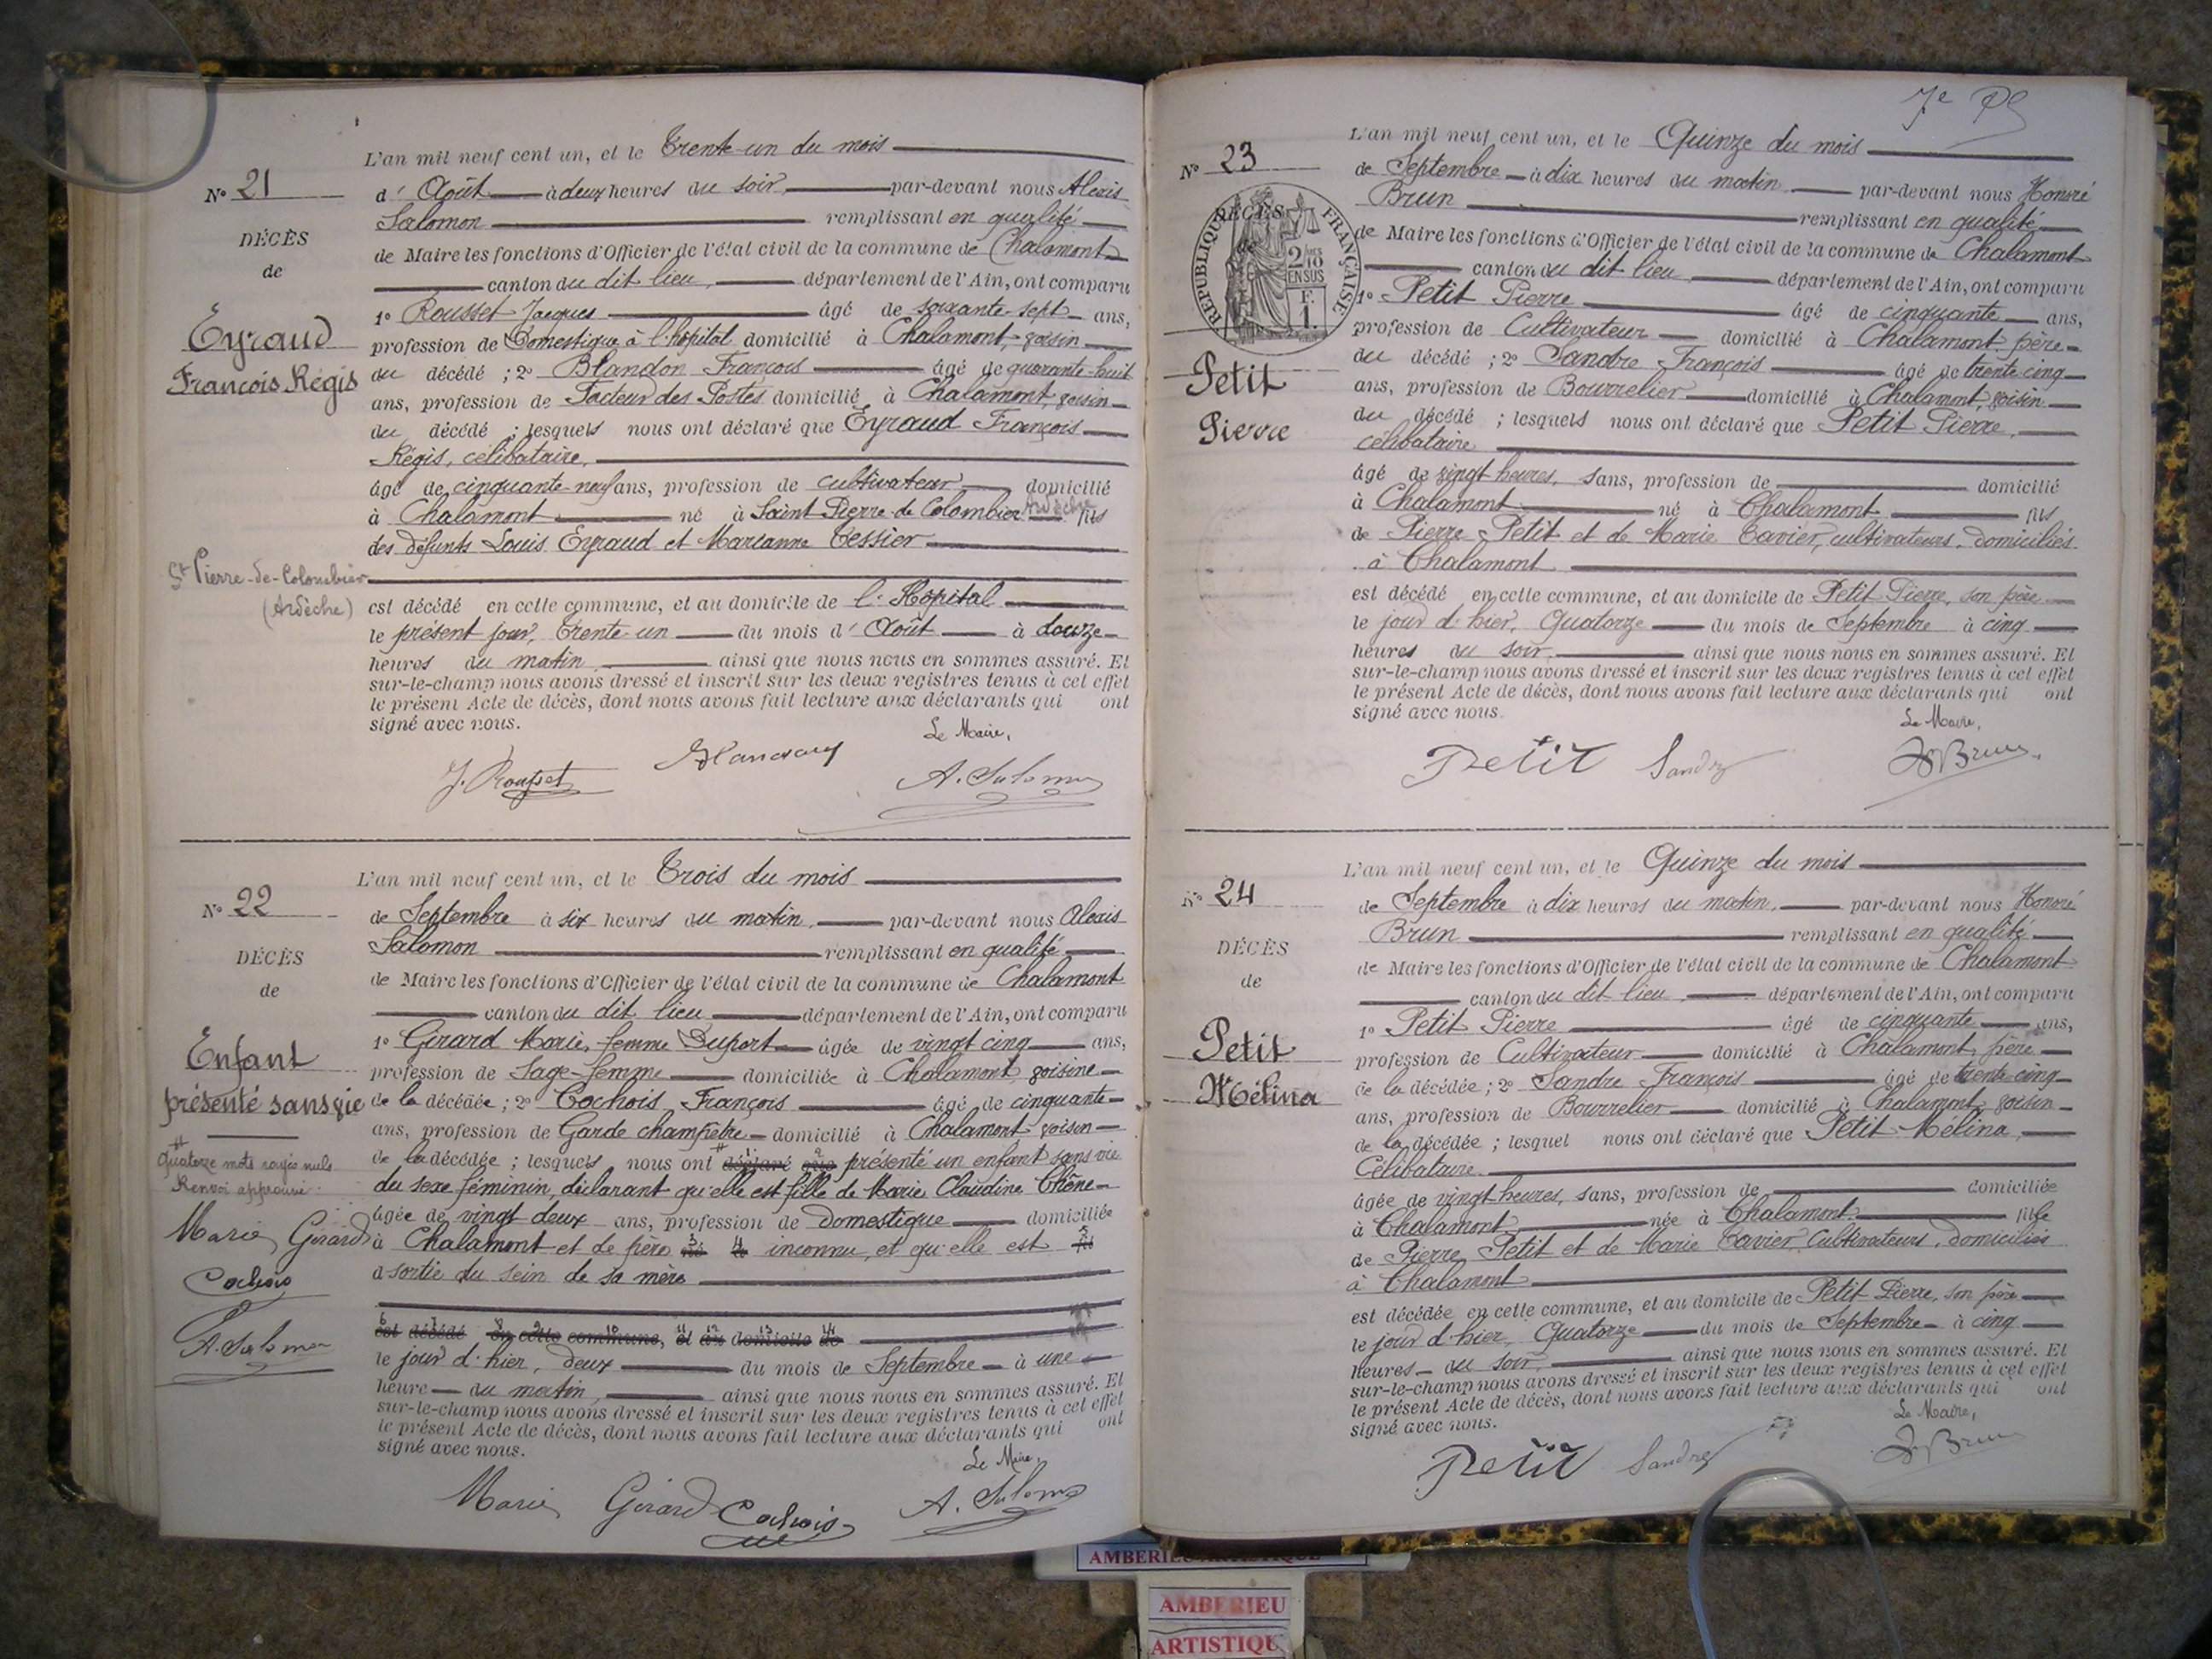 N° 21
DÉCÈS
de
Eyraud
François Régis
St Pierre-de-Colombier
(Ardèche)
L'an mil neuf cent un, et le Trente-un du mois
d' Août à deux heures du soir, par-devant nous Alexis
Salomon remplissant en qualité
de Maire les fonctions d'Officier de l'état civil de la commune de Chalamont
canton du dit lieu, département de l'Ain, ont comparu
1° Rousset Jacques âgé de soixante-sept ans,
profession de Domestique à l'hôpital domicilié à Chalamont, voisin
du décédé ; 2° Blandon François âgé de quarante-huit
ans, profession de Facteur des Postes domicilié à Chalamont, voisin
du décédé ; lesquels nous ont déclaré que Eyraud François
Régis, célibataire,
âgé de cinquante-neuf ans, profession de cultivateur domicilié
à Chalamont né à Saint Pierre de Colombier Ardèche fils
des défunts Louis Eyraud et Marianne Tessier
est décédé en cette commune, et au domicile de l'Hôpital
le présent jour, Trente-un du mois d' Août à douze
heures du matin, ainsi que nous nous en sommes assuré. Et
sur-le-champ nous avons dressé et inscrit sur les deux registres tenus à cet effet
le présent Acte de décès, dont nous avons fait lecture aux déclarants qui ont
signé avec nous.
Le Maire,
J. Rousset
A. Salomon
N° 22
DÉCÈS
de
Enfant
présenté sans vie
Quatorze mots rayés nuls
Renvoi approuvé
Marie Girard
Cochois
A. Salomon
L'an mil neuf cent un, et le Trois du mois
de Septembre à six heures du matin, par-devant nous Alexis
Salomon remplissant en qualité
de Maire les fonctions d'Officier de l'état civil de la commune de Chalamont
canton du dit lieu département de l'Ain, ont comparu
1° Girard Marie, femme Dupert âgée de vingt cinq ans,
profession de Sage-femme domiciliée à Chalamont, voisine
de la décédée ; 2° Cochois François âgé de cinquante
ans, profession de Garde champêtre domicilié à Chalamont voisin
de la décédée ; lesquels nous ont déclaré que présenté un enfant sans vie
du sexe féminin, déclarant qu'elle est fille de Marie Claudine Chêne
âgée de vingt deux ans, profession de domestique domiciliée
à Chalamont et de père né à inconnu, et qu'elle est fil
a sortie du sein de sa mère
est décédé en cette commune, et au domicile de
le jour d'hier, deux du mois de Septembre à une
heure du matin, ainsi que nous nous en sommes assuré. Et
sur-le-champ nous avons dressé et inscrit sur les deux registres tenus à cet effet
le présent Acte de décès, dont nous avons fait lecture aux déclarants qui ont
signé avec nous.
Le Maire,
Marie Girard Cochois A. Salomon
7e
N° 23
DÉCÈS
de
RÉPUBLIQUE FRANÇAISE
2/10 EN SUS
F. 1.
Petit
Pierre
L'an mil neuf cent un, et le Quinze du mois
de Septembre à dix heures du matin par-devant nous Honoré
Brun remplissant en qualité
de Maire les fonctions d'Officier de l'état civil de la commune de Chalamont
canton du dit lieu département de l'Ain, ont comparu
1° Petit Pierre âgé de cinquante ans,
profession de Cultivateur domicilié à Chalamont père
du décédé ; 2° Sandre François âgé de trente cinq
ans, profession de Bourrelier domicilié à Chalamont, voisin
du décédé ; lesquels nous ont déclaré que Petit Pierre,
célibataire
âgé de vingt heures, sans, profession de domicilié
à Chalamont né à Chalamont fils
de Pierre Petit et de Marie Tavier, cultivateurs, domiciliés
à Chalamont
est décédé en cette commune, et au domicile de Petit Pierre, son père
le jour d'hier, Quatorze du mois de Septembre à cinq
heures du soir, ainsi que nous nous en sommes assuré. Et
sur-le-champ nous avons dressé et inscrit sur les deux registres tenus à cet effet
le présent Acte de décès, dont nous avons fait lecture aux déclarants qui ont
signé avec nous.
Le Maire,
Petit Sandre H Brun
N° 24
DÉCÈS
de
Petit
Mélina
L'an mil neuf cent un, et le Quinze du mois
de Septembre à dix heures du matin, par-devant nous Honoré
Brun remplissant en qualité
de Maire les fonctions d'Officier de l'état civil de la commune de Chalamont
canton du dit lieu, département de l'Ain, ont comparu
1° Petit Pierre âgé de cinquante ans,
profession de Cultivateur domicilié à Chalamont, père
de la décédée ; 2° Sandre François âgé de trente-cinq
ans, profession de Bourrelier domicilié à Chalamont, voisin
de la décédée ; lesquel nous ont déclaré que Petit Mélina,
Célibataire
âgée de vingt heures, sans, profession de domiciliée
à Chalamont née à Chalamont fille
de Pierre Petit et de Marie Tavier Cultivateurs, domiciliés
à Chalamont
est décédée en cette commune, et au domicile de Petit Pierre, son père
le jour d'hier, Quatorze du mois de Septembre à cinq
heures du soir, ainsi que nous nous en sommes assuré. Et
sur-le-champ nous avons dressé et inscrit sur les deux registres tenus à cet effet
le présent Acte de décès, dont nous avons fait lecture aux déclarants qui ont
signé avec nous.
Le Maire,
Petit Sandre H Brun
AMBERIEU ARTISTIQUE
AMBERIEU
ARTISTIQU